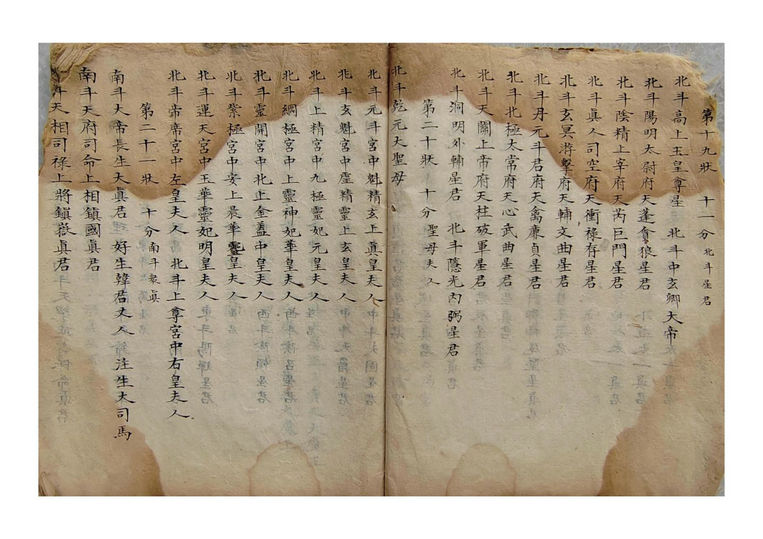 第十九狀 十一分 北斗星君
北斗高上玉皇尊星 北斗中玄卿大帝
北斗陽明太尉府天蓬貪狼星君
北斗陰精上宰府天芮巨門星君
北斗真人司空府天衝祿存星君
北斗玄冥將擊府天輔文曲星君
北斗丹元斗君府天禽廉貞星君
北斗北極太常府天心武曲星君
北斗天關上帝府天柱破軍星君
北斗洞明外輔星君 北斗隱光內弼星君
第二十狀 十分 聖母夫人
北斗乾元大聖母
北斗元斗宮中魁精玄上真皇夫人
北斗玄魁宮中虛精靈上玄皇夫人
北斗上精宮中九極靈妃元皇夫人
北斗綱極宮中上靈神妃華皇夫人
北斗靈開宮中北上金蓋中皇夫人
北斗紫極宮中安上晨華靈皇夫人
北斗運天宮中玉華靈妃明皇夫人
北斗帝席宮中左皇夫人 北斗上尊宮中右皇夫人
第二十一狀 十分 南斗眾真
南斗大帝長生大真君 好生韓君丈人 注生大司馬
南斗天府司命上相鎮國真君
斗天相司祿上將鎮嶽真君